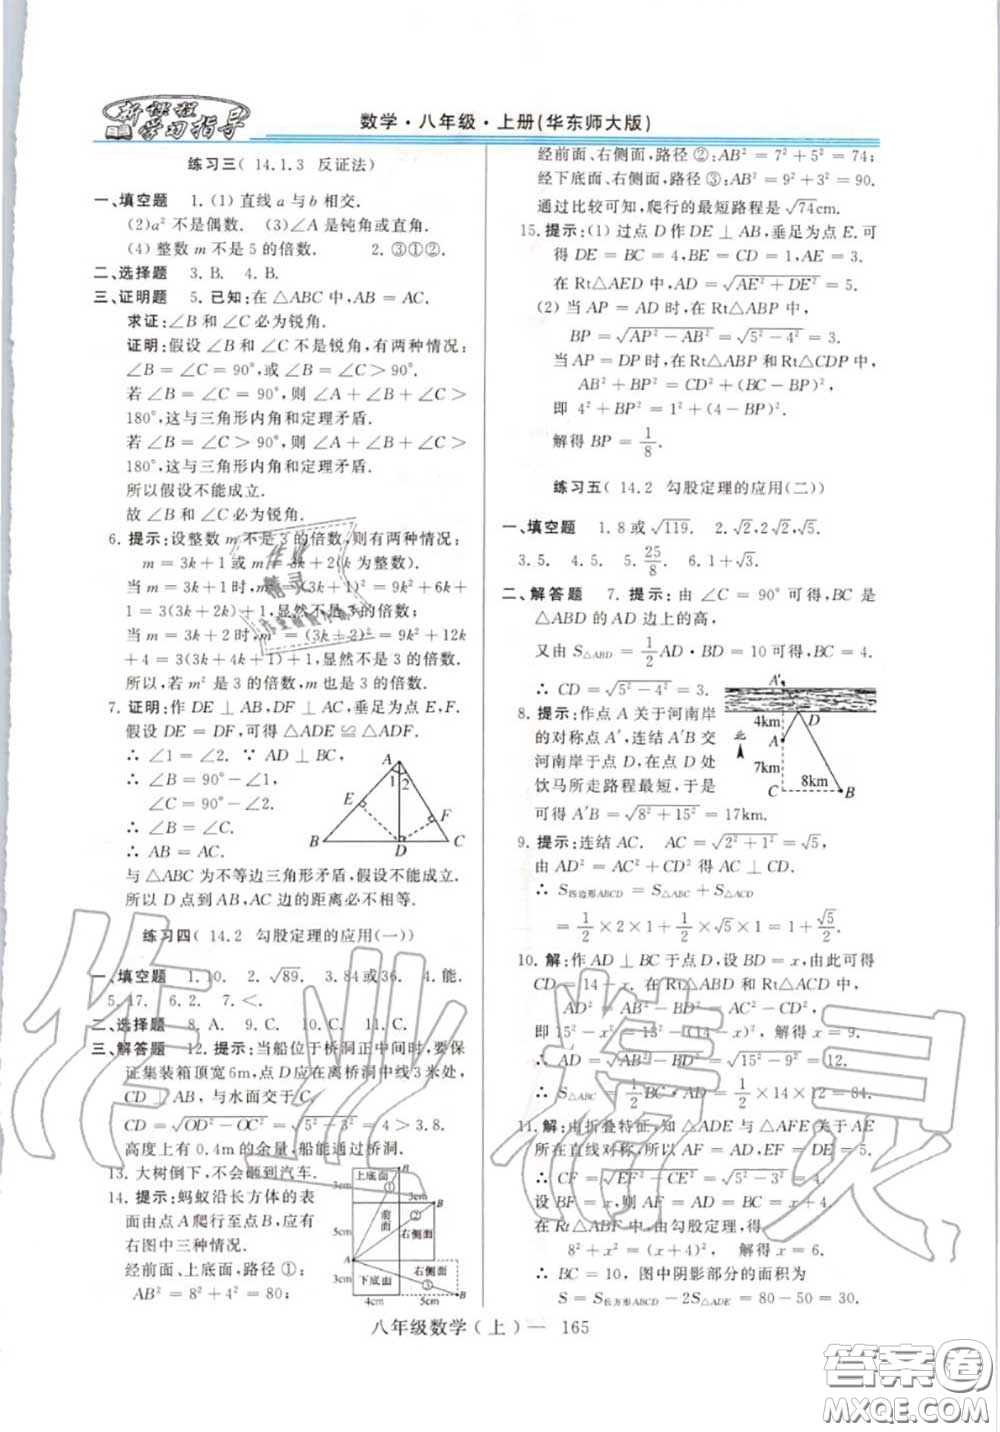 新课程
学习指导
数学·八年级·上册(华东师大版)
练习三( 14.1.3 反证法)
一、填空题 1. (1) 直线 a 与 b 相交.
(2)a² 不是偶数. (3)∠A 是钝角或直角.
(4) 整数 m 不是 5 的倍数. 2. ③①②.
二、选择题 3. B. 4. B.
三、证明题 5. 已知:在 △ABC 中, AB = AC.
求证:∠B 和 ∠C 必为锐角.
证明:假设 ∠B 和 ∠C 不是锐角,有两种情况:
∠B = ∠C = 90°,或 ∠B = ∠C > 90°.
若 ∠B = ∠C = 90°,则 ∠A + ∠B + ∠C >
180°,这与三角形内角和定理矛盾.
若 ∠B = ∠C > 90°,则 ∠A + ∠B + ∠C >
180°,这与三角形内角和定理矛盾.
所以假设不能成立.
故 ∠B 和 ∠C 必为锐角.
6. 提示:设整数 m 不是 3 的倍数,则有两种情况:
m = 3k + 1 或 m = 3k + 2(k 为整数).
当 m = 3k + 1 时, m² = (3k + 1)² = 9k² + 6k +
1 = 3(3k² + 2k) + 1,显然不是 3 的倍数;
当 m = 3k + 2 时, m² = (3k + 2)² = 9k² + 12k
+ 4 = 3(3k + 4k + 1) + 1,显然不是 3 的倍数.
所以,若 m² 是 3 的倍数, m 也是 3 的倍数.
7. 证明:作 DE ⊥ AB, DF ⊥ AC, 垂足为点 E, F.
假设 DE = DF, 可得 △ADE ≌ △ADF.
∴ ∠1 = ∠2. ∵ AD ⊥ BC,
∴ ∠B = 90° − ∠1,
∠C = 90° − ∠2.
∴ ∠B = ∠C.
∴ AB = AC.
与 △ABC 为不等边三角形矛盾,假设不能成立.
所以 D 点到 AB, AC 边的距离必不相等.
A
1 2
E
F
B D C
练习四( 14.2 勾股定理的应用(一))
一、填空题 1. 10. 2. √89. 3. 84 或 36. 4. 能.
5. 17. 6. 2. 7. <.
二、选择题 8. A. 9. C. 10. C. 11. C.
三、解答题 12. 提示:当船位于桥洞正中间时,要保
证集装箱顶宽 6m, 点 D 应在离桥洞中线 3 米处,
CD ⊥ AB, 与水面交于 C.
CD = √OD² − OC² = √5² − 3² = 4 > 3.8.
高度上有 0.4m 的余量,船能通过桥洞.
13. 大树倒下,不会砸到汽车.
14. 提示:蚂蚁沿长方体的表
面由点 A 爬行至点 B, 应有
右图中三种情况.
经前面、上底面,路径 ①:
AB² = 8² + 4² = 80;
3cm 上底面 ① 3cm
B
5cm 前面 ② 右侧面 5cm
A
3cm 下底面 右侧面 ①
4cm 5cm B
经前面、右侧面,路径 ②:AB² = 7² + 5² = 74;
经下底面、右侧面,路径 ③:AB² = 9² + 3² = 90.
通过比较可知,爬行的最短路程是 √74cm.
15. 提示:(1) 过点 D 作 DE ⊥ AB, 垂足为点 E. 可
得 DE = BC = 4, BE = CD = 1, AE = 3.
在 Rt△AED 中, AD = √AE² + DE² = 5.
(2) 当 AP = AD 时,在 Rt△ABP 中,
BP = √AP² − AB² = √5² − 4² = 3;
当 AP = DP 时,在 Rt△ABP 和 Rt△CDP 中,
AB² + BP² = CD² + (BC − BP)²,
即 4² + BP² = 1² + (4 − BP)².
解得 BP = 1/8.
练习五( 14.2 勾股定理的应用(二))
一、填空题 1. 8 或 √119. 2. √2, 2√2, √5.
3. 5. 4. 5. 5. 25/8. 6. 1 + √3.
二、解答题 7. 提示:由 ∠C = 90° 可得, BC 是
△ABD 的 AD 边上的高,
又由 S△ABD = 1/2 AD · BD = 10 可得, AD = 5.
∴ CD = √5² − 4² = 3.
8. 提示:作点 A 关于河南岸
的对称点 A′, 连结 A′B 交
河南岸于点 D, 在点 D 处
饮马所走路程最短,于是
可得 A′B = √8² + 15² = 17km.
A′
4km D
北 A
7km
8km
C B
9. 提示:连结 AC. AC = √2² + 1² = √5,
由 AD² = AC² + CD² 得 AC ⊥ CD.
∴ S四边形ABCD = S△ABC + S△ACD
= 1/2 × 2 × 1 + 1/2 × √5 × 1 = 1 + √5/2.
10. 解:作 AD ⊥ BC 于点 D, 设 BD = x, 由此可得
CD = 14 − x. 在 Rt△ABD 和 Rt△ACD 中,
AD² = AB² − BD² = AC² − CD²,
即 15² − x² = 13² − (14 − x)², 解得 x = 9.
∴ AD = √AB² − BD² = √15² − 9² = 12.
∴ S△ABC = 1/2 BC · AD = 1/2 × 14 × 12 = 84.
11. 解:由折叠特征,知 △ADE 与 △AFE 关于 AE
所在直线对称,所以 AF = AD, EF = DE = 5.
∴ CF = √EF² − CE² = √5² − 3² = 4.
设 BF = x, 则 AF = AD = BC = x + 4.
在 Rt△ABF 中,由勾股定理,得
8² + x² = (x + 4)², 解得 x = 6.
∴ BC = 10, 图中阴影部分的面积为
S = S长方形ABCD − 2S△ADE = 80 − 50 = 30.
八年级数学(上)— 165
作业精灵
答案卷
MXQE.COM